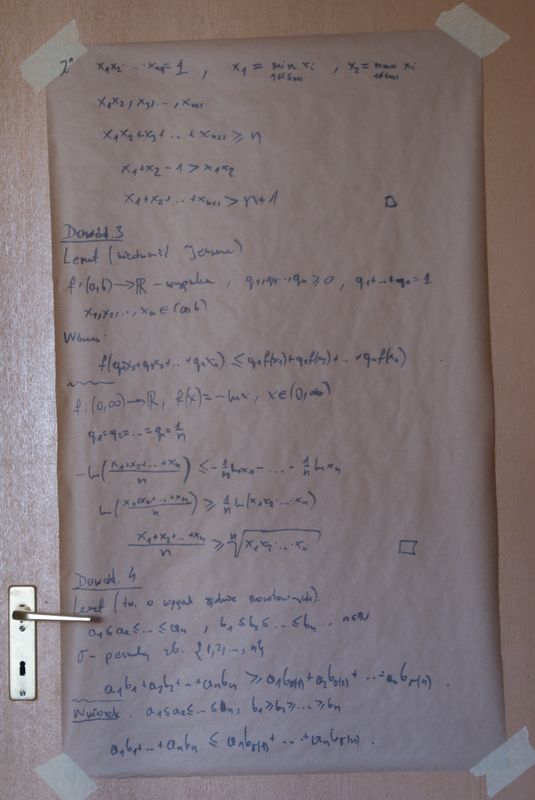 2° x₁x₂·…·xₙ₊₁=1 , x₁ = min xᵢ 1≤i≤n+1 , x₂ = max xᵢ 1≤i≤n+1
x₁x₂, x₃, …, xₙ₊₁
x₁x₂+x₃+…+xₙ₊₁ ≥ n
x₁+x₂ - 1 > x₁x₂
x₁+x₂+…+xₙ₊₁ > n+1 □
Dowód.3
Lemat (nierówność Jensena)
f:(a,b)→ℝ - wypukła , q₁,q₂,…,qₙ ≥ 0 , q₁+…+qₙ=1
x₁,x₂,…,xₙ ∈ (a,b)
Wówczas:
f(q₁x₁+q₂x₂+…+qₙxₙ) ≤ q₁f(x₁)+q₂f(x₂)+…+qₙf(xₙ)
f:(0,∞)→ℝ, f(x)=-ln x , x∈(0,∞)
q₁=q₂=…=qₙ=1/n
-ln((x₁+x₂+…+xₙ)/n) ≤ -1/n ln x₁ - … - 1/n ln xₙ
ln((x₁+x₂+…+xₙ)/n) ≥ 1/n ln(x₁x₂·…·xₙ)
(x₁+x₂+…+xₙ)/n ≥ ⁿ√(x₁x₂·…·xₙ) □
Dowód.4
Lemat (tw. o ciągach zgodnie monotonicznych).
a₁≤a₂≤…≤aₙ , b₁≤b₂≤…≤bₙ . n∈ℕ
σ - zb. {1,2,…,n}
a₁b₁+a₂b₂+…+aₙbₙ ≥ a₁b_σ(1)+a₂b_σ(2)+…+aₙb_σ(n) .
Wniosek . a₁≤a₂≤…≤aₙ, b₁≥b₂≥…≥bₙ
a₁b₁+…+aₙbₙ ≤ a₁b_σ(1)+…+aₙb_σ(n) .